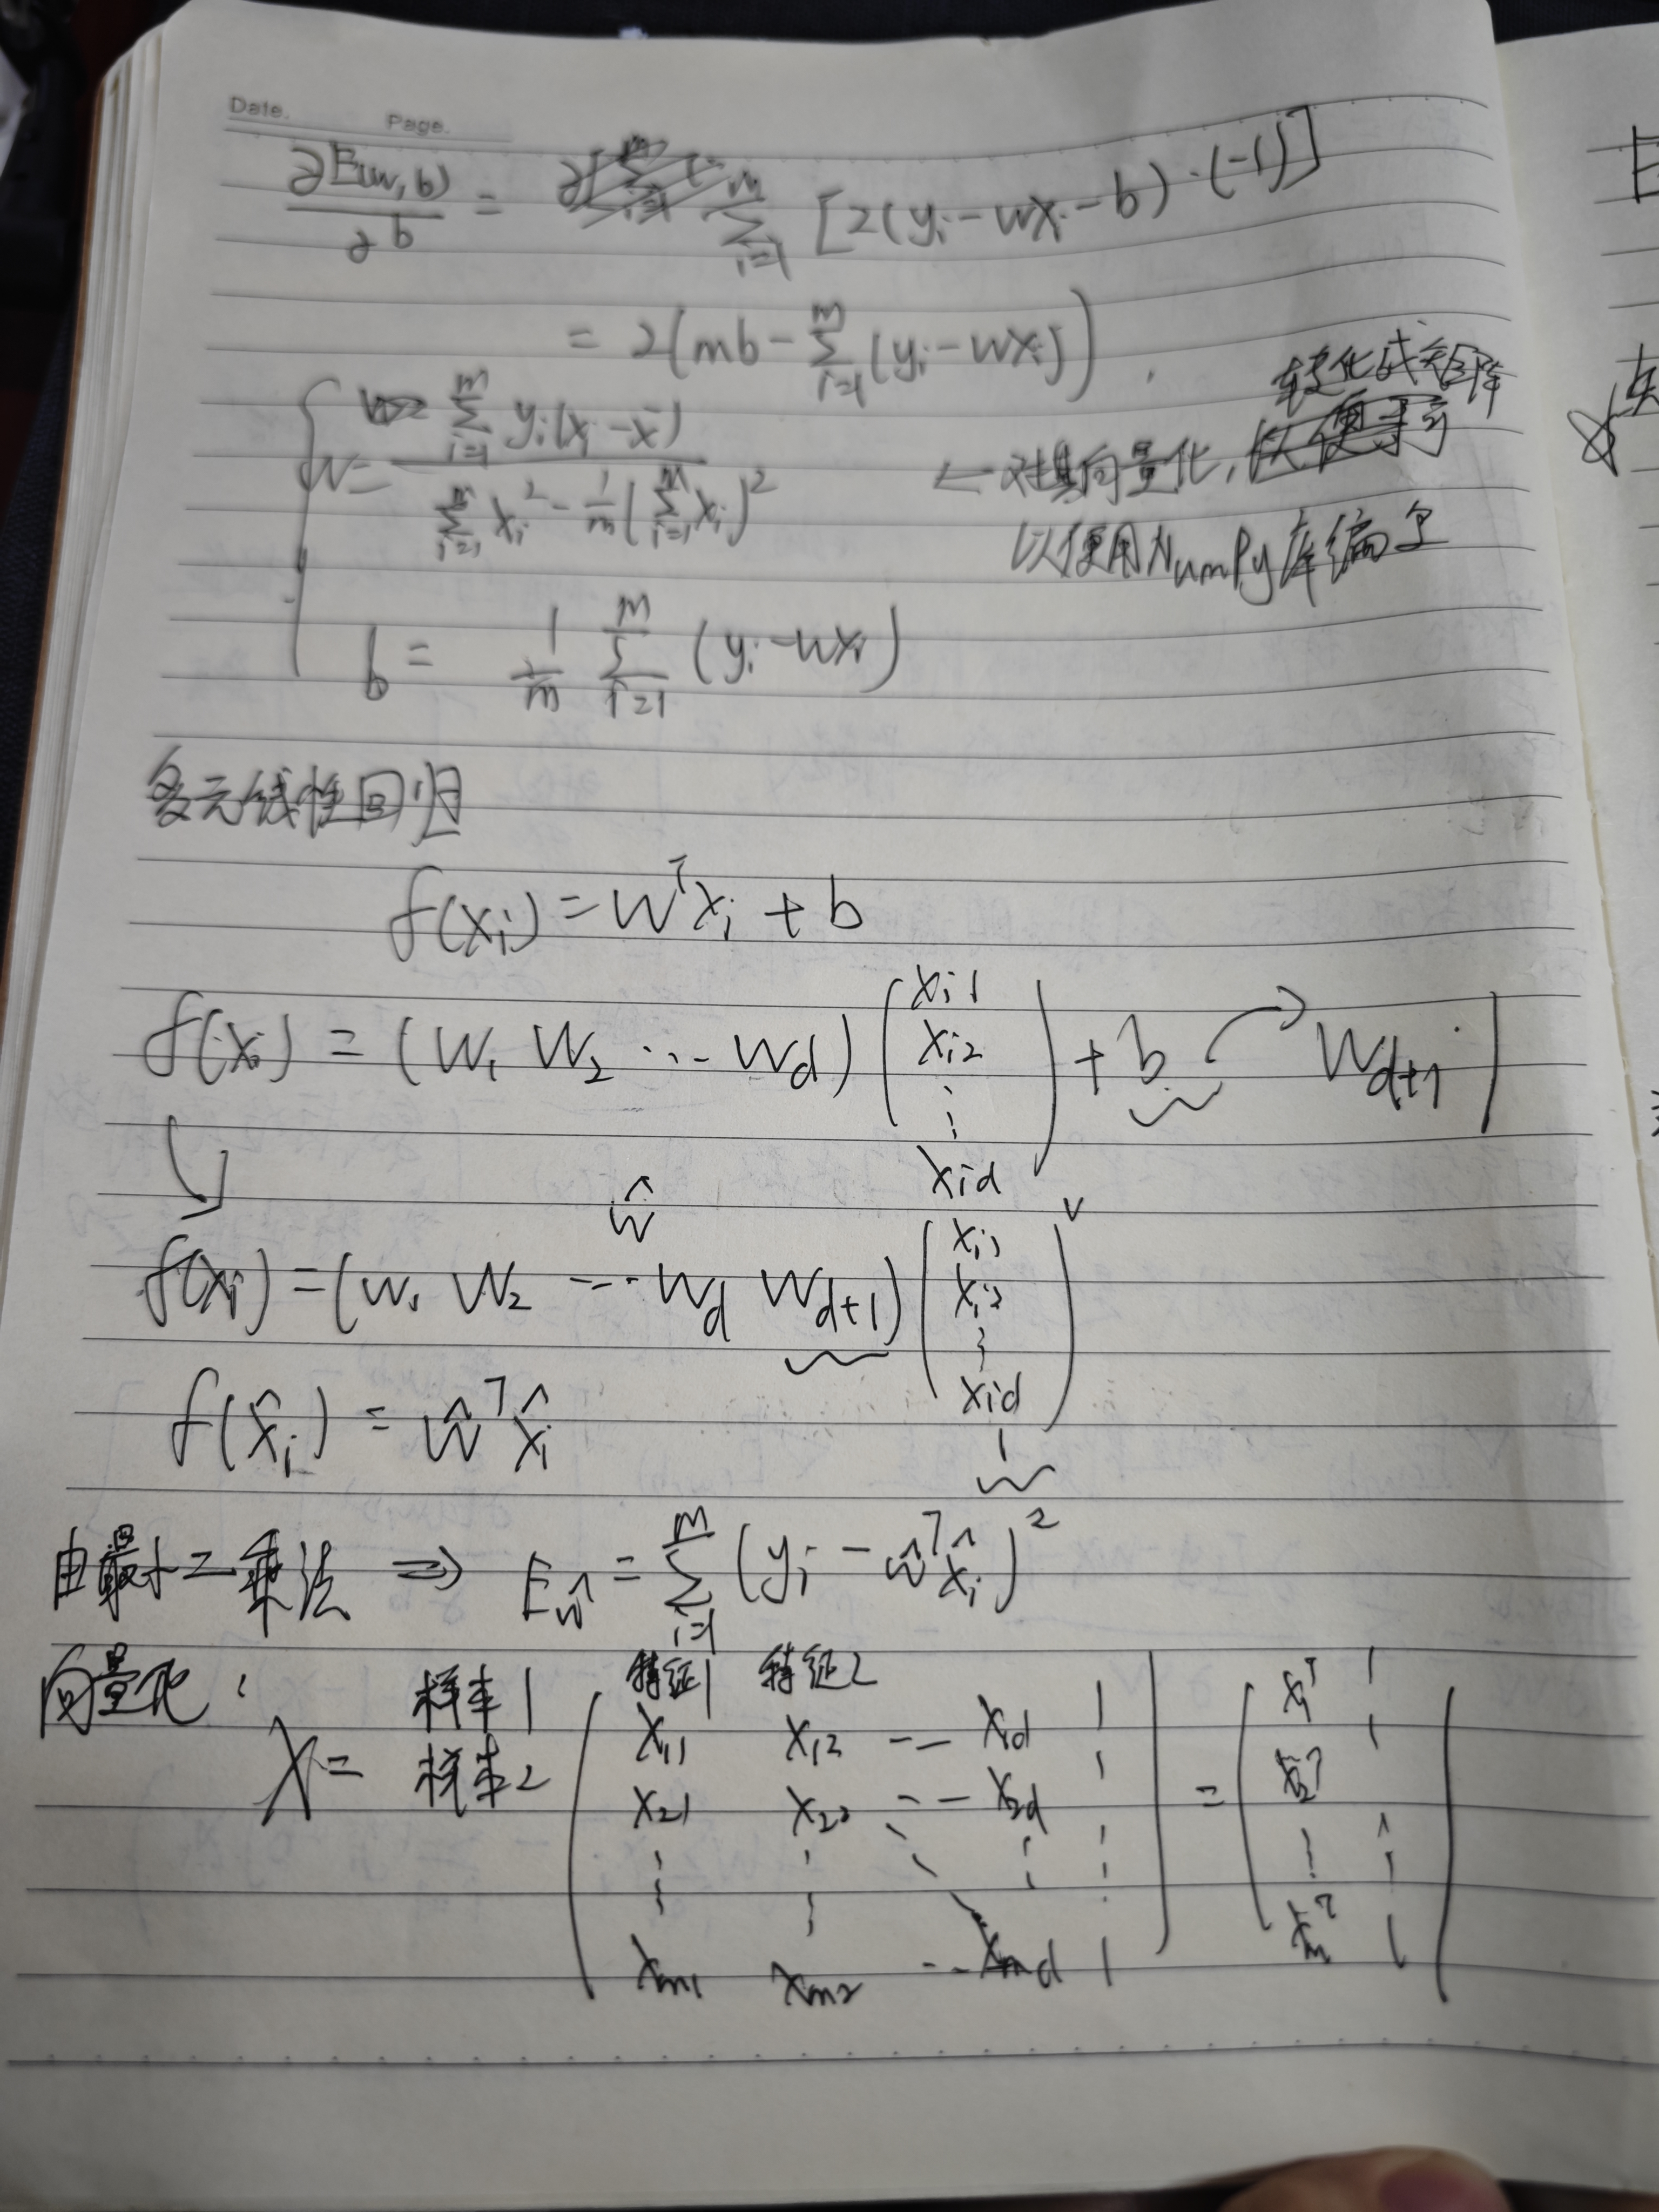 Date.    Page.
∂E(w,b)/∂b = Σ_{i=1}^{m} [2(yᵢ - wxᵢ - b)·(-1)]
= 2(mb - Σ_{i=1}^{m} (yᵢ - wxᵢ))
转化成矩阵
w = Σ_{i=1}^{m} yᵢ(xᵢ - x̄) / (Σ_{i=1}^{m} xᵢ² - 1/m (Σ_{i=1}^{m} xᵢ)²)
← 对其向量化,
以使用NumPy库编
b = 1/m Σ_{i=1}^{m} (yᵢ - wxᵢ)
多元线性回归
f(xᵢ) = wᵀxᵢ + b
f(xᵢ) = (w₁ w₂ ... w_d) (x_{i1} x_{i2} ⋮ x_{id}) + b → w_{d+1}·1
ŵ
f(xᵢ) = (w₁ w₂ ... w_d w_{d+1}) (x_{i1} x_{i2} ⋮ x_{id} 1)
f(x̂ᵢ) = ŵᵀx̂ᵢ
由最小二乘法 ⇒ E_ŵ = Σ_{i=1}^{m} (yᵢ - ŵᵀx̂ᵢ)²
向量化:
特征1 特征2
X = 样本1 样本2 (x₁₁ x₁₂ ... x_{1d} 1
x₂₁ x₂₂ ... x_{2d} 1
⋮ ⋮ ⋱ ⋮ ⋮
x_{m1} x_{m2} ... x_{md} 1) = (x₁ᵀ 1
x₂ᵀ 1
⋮ ⋮
x_mᵀ 1)